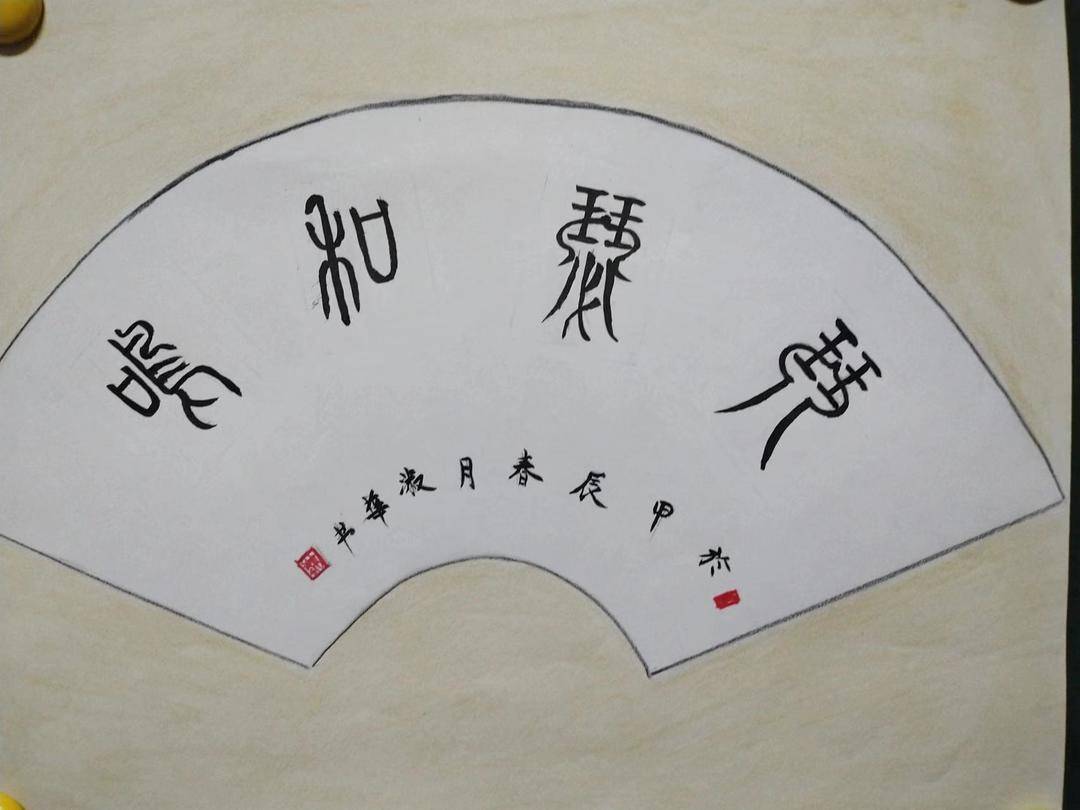 琴瑟和鸣
於甲辰春月淑華书